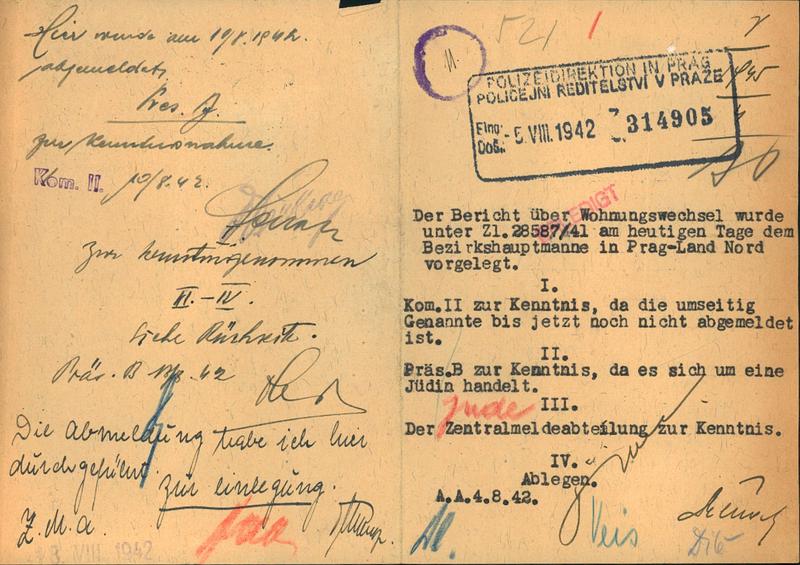 Hier wurde am 10/8.1942
abgemeldet
Pres. J.
zur Kenntnisnahme.
Kom. II. 10/8.42.
zur Kenntnis genommen
II.-IV.
Siehe Rückseite.
Präs. B 42
Die Abmeldung habe ich hier
durchgeführt.
zur einlegung.
Z.M.a.
VIII. 1942
521 1
POLIZEIDIREKTION IN PRAG
POLICEJNÍ ŘEDITELSTVÍ V PRAZE
Eing.
Doš.: -5.VIII.1942 314905
1945
Der Bericht über Wohnungswechsel wurde
unter Zl.28587/41 am heutigen Tage dem
Bezirkshauptmanne in Prag-Land Nord
vorgelegt.
I.
Kom.II zur Kenntnis, da die umseitig
Genannte bis jetzt noch nicht abgemeldet
ist.
II.
Präs.B zur Kenntnis, da es sich um eine
Jüdin handelt.
Jude III.
Der Zentralmeldeabteilung zur Kenntnis.
IV.
Ablegen.
A.A.4.8.42.
Veis